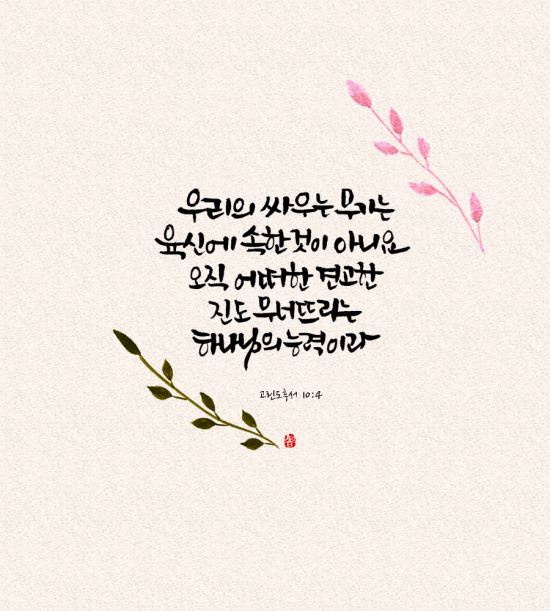 우리의 싸우는 무기는
육신에 속한것이 아니요
오직 어떠한 견고한
진도 무너뜨리는
하나님의 능력이라
고린도후서 10:4